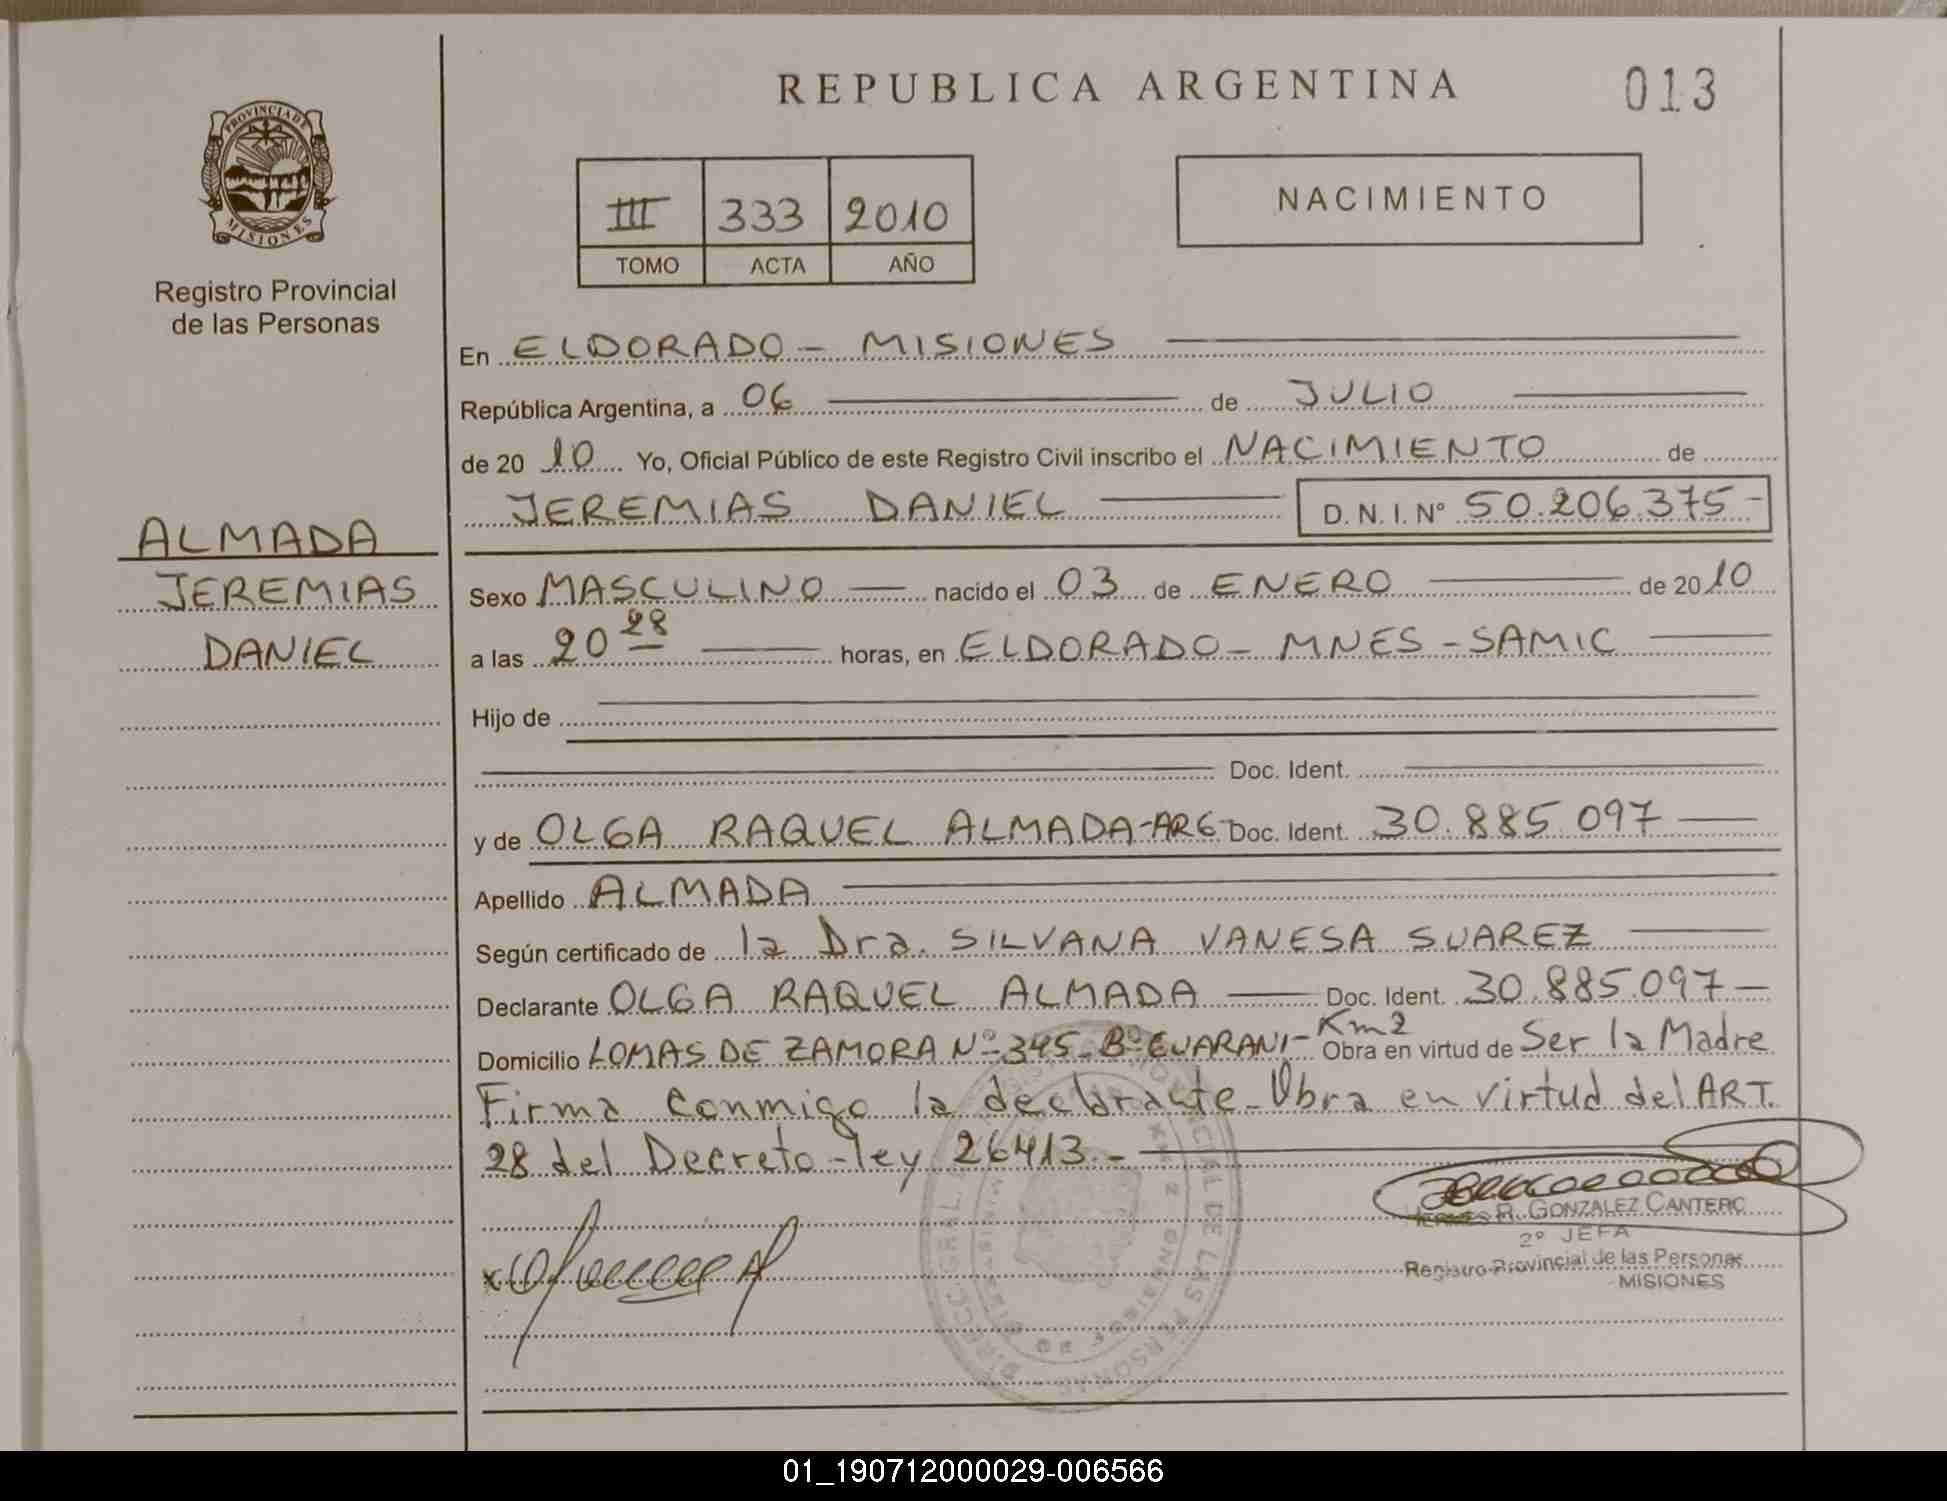 REPUBLICA ARGENTINA
013
PROVINCIA DE
MISIONES
Registro Provincial
de las Personas
III 333 2010
TOMO ACTA AÑO
NACIMIENTO
En ELDORADO - MISIONES
República Argentina, a 06 de JULIO
de 20 10 Yo, Oficial Público de este Registro Civil inscribo el NACIMIENTO de
JEREMIAS DANIEL D.N.I.Nº 50.206.375-
ALMADA
JEREMIAS
DANIEL
Sexo MASCULINO nacido el 03 de ENERO de 2010
a las 20 28 horas, en ELDORADO - MNES - SAMIC
Hijo de
Doc. Ident.
y de OLGA RAQUEL ALMADA-ARG- Doc. Ident. 30.885.097
Apellido ALMADA
Según certificado de la Dra. SILVANA VANESA SUAREZ
Declarante OLGA RAQUEL ALMADA Doc. Ident. 30.885.097
Domicilio LOMAS DE ZAMORA Nº 345- Bº GUARANI- Km2 Obra en virtud de Ser la Madre
Firma conmigo la declarante - Obra en virtud del ART.
28 del Decreto-ley 26413.-
R. GONZALEZ CANTERO
2º JEFA
Registro Provincial de las Personas
MISIONES
01_190712000029-006566